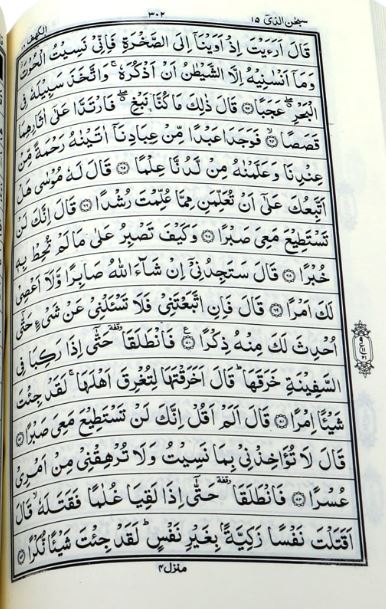 سبحن الذی ۱۵
۳۰۲
الکهف ۱۸
قَالَ اَرَءَيْتَ اِذْ اَوَيْنَاۤ اِلَى الصَّخْرَةِ فَاِنِّىْ نَسِيْتُ الْحُوْتَ
وَمَاۤ اَنْسٰنِيْهُ اِلَّا الشَّيْطٰنُ اَنْ اَذْكُرَهٗ ۚ وَاتَّخَذَ سَبِيْلَهٗ فِى
الْبَحْرِ ۖ عَجَبًا ﴿۶۳﴾ قَالَ ذٰلِكَ مَا كُنَّا نَبْغِ ۖ فَارْتَدَّا عَلٰۤى اٰثَارِهِمَا
قَصَصًا ﴿۶۴﴾ فَوَجَدَا عَبْدًا مِّنْ عِبَادِنَاۤ اٰتَيْنٰهُ رَحْمَةً مِّنْ
عِنْدِنَا وَعَلَّمْنٰهُ مِنْ لَّدُنَّا عِلْمًا ﴿۶۵﴾ قَالَ لَهٗ مُوْسٰى هَلْ
اَتَّبِعُكَ عَلٰۤى اَنْ تُعَلِّمَنِ مِمَّا عُلِّمْتَ رُشْدًا ﴿۶۶﴾ قَالَ اِنَّكَ لَنْ
تَسْتَطِيْعَ مَعِىَ صَبْرًا ﴿۶۷﴾ وَكَيْفَ تَصْبِرُ عَلٰى مَا لَمْ تُحِطْ بِهٖ
خُبْرًا ﴿۶۸﴾ قَالَ سَتَجِدُنِىْۤ اِنْ شَآءَ اللّٰهُ صَابِرًا وَّلَاۤ اَعْصِىْ
لَكَ اَمْرًا ﴿۶۹﴾ قَالَ فَاِنِ اتَّبَعْتَنِىْ فَلَا تَسْـَٔلْنِىْ عَنْ شَىْءٍ حَتّٰۤى
اُحْدِثَ لَكَ مِنْهُ ذِكْرًا ﴿۷۰﴾ فَانْطَلَقَا ۥ حَتّٰۤى اِذَا رَكِبَا فِى
السَّفِيْنَةِ خَرَقَهَا ؕ قَالَ اَخَرَقْتَهَا لِتُغْرِقَ اَهْلَهَا ۚ لَقَدْ جِئْتَ
شَيْـًٔا اِمْرًا ﴿۷۱﴾ قَالَ اَلَمْ اَقُلْ اِنَّكَ لَنْ تَسْتَطِيْعَ مَعِىَ صَبْرًا ﴿۷۲﴾
قَالَ لَا تُؤَاخِذْنِىْ بِمَا نَسِيْتُ وَلَا تُرْهِقْنِىْ مِنْ اَمْرِىْ
عُسْرًا ﴿۷۳﴾ فَانْطَلَقَا ۥ حَتّٰۤى اِذَا لَقِيَا غُلٰمًا فَقَتَلَهٗ ۙ قَالَ
اَقَتَلْتَ نَفْسًا زَكِيَّةًۢ بِغَيْرِ نَفْسٍ ؕ لَقَدْ جِئْتَ شَيْـًٔا نُّكْرًا ﴿۷۴﴾
منزل ۴